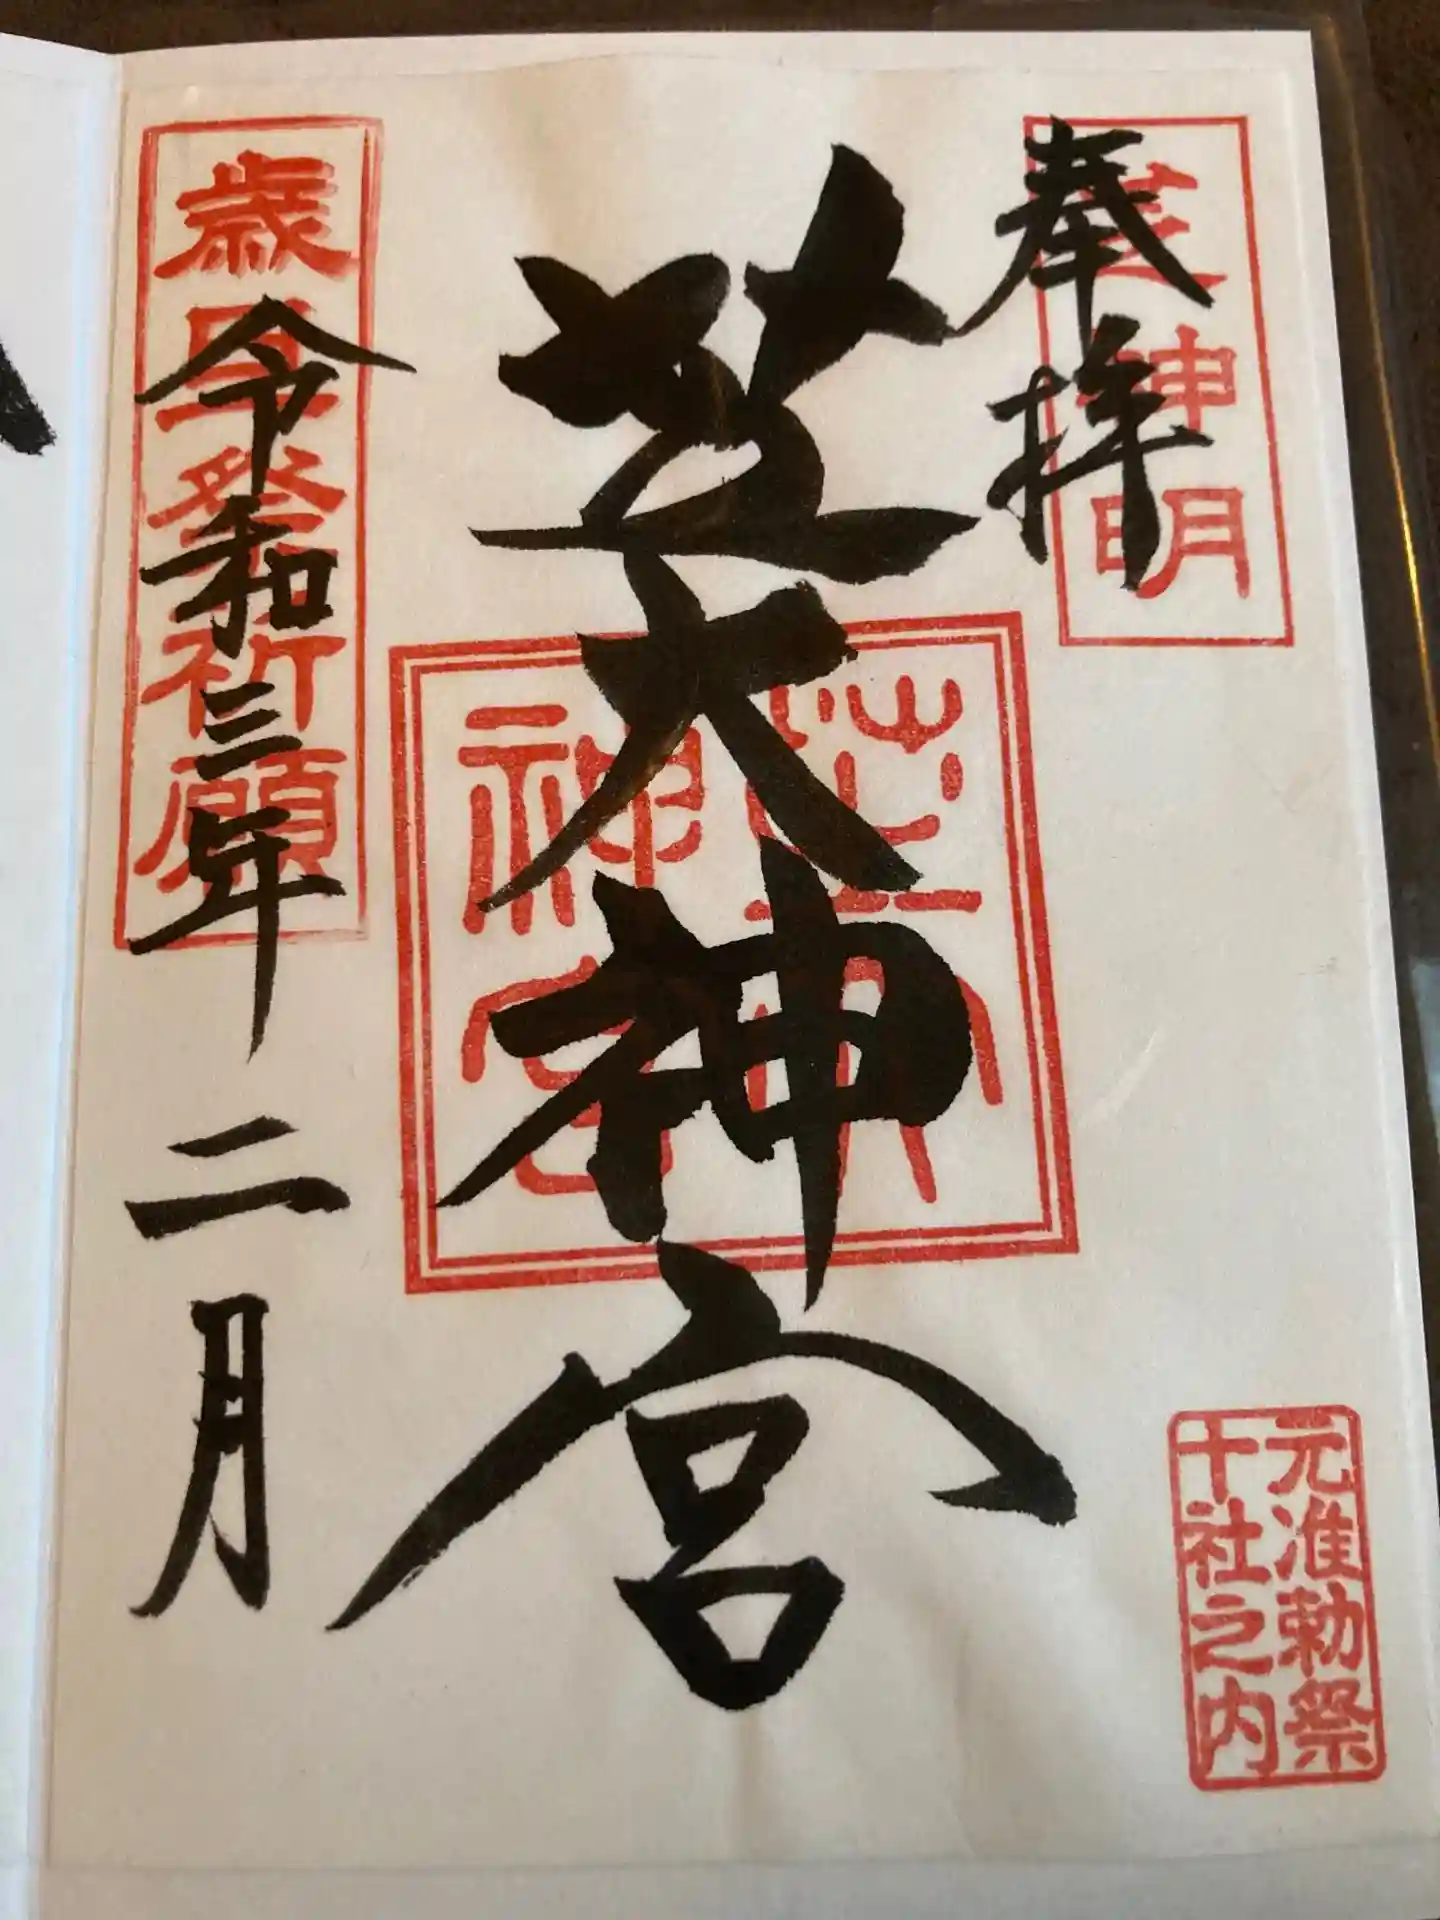 奉拝
芝神明
芝大神宮
芝大
神宮
元准勅祭
十社之内
令和三年二月
歳旦祭祈願